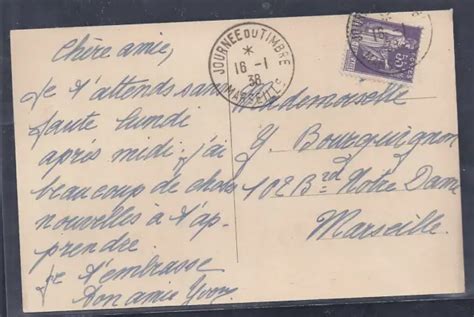 Chère amie,
Je t'attends sans
faute lundi
après midi. j'ai
beaucoup de choses
nouvelles à t'ap-
prendre.
Je t'embrasse
Ton amie
JOURNEE DU TIMBRE
*
16-1
38
MARSEILLE
55c
Mademoiselle
Y. Bourguignon
102 Bd Notre Dame
Marseille.